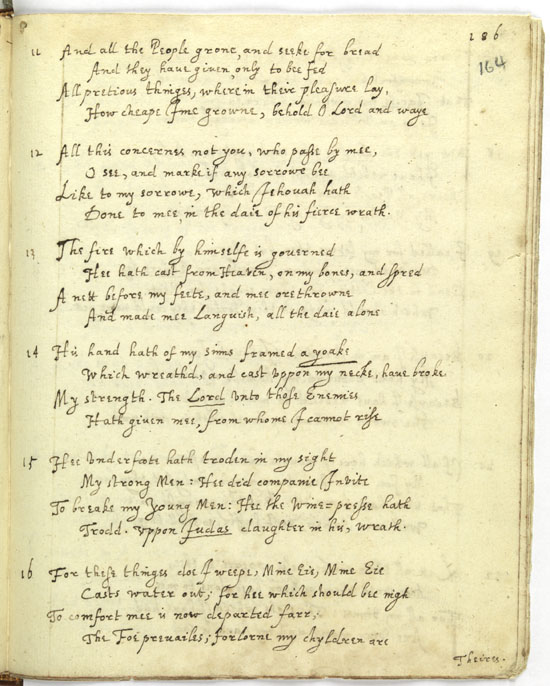 186
164
11 And all the People grone, and seeke for bread
And they have given, only to bee fed
All pretious thinges, wherein their pleasure lay,
How cheape I'me growne, behold O Lord and waye
12 All this concernes not you, who passe by mee,
O see, and marke if any sorrowe bee
Like to my sorrowe, which Jehovah hath
Done to mee in the daie of his fierce wrath.
13 The fire which by himselfe is governed
Hee hath cast from Heaven, on my bones, and spred
A nett before my feete, and mee orethrowne
And made mee Languish, all the daie alone
14 His hand hath of my sinns framed a yoake
Which wreathd, and cast vppon my necke, have broke
My strength. The Lord vnto those Enemies
Hath given mee, from whome I cannot rise
15 Hee vnderfoote hath troden in my sight
My strong Men: Hee did companie Invite
To breake my Young Men: Hee the Wine=presse hath
Trodd. vppon Judas daughter in his, wrath.
16 For these thinges doe I weepe, Mine Eie, Mine Eie
Casts water out; for hee which should bee nigh
To comfort mee is now departed farr,
The Foe prevailes; forlorne my chyldren are
Theires.